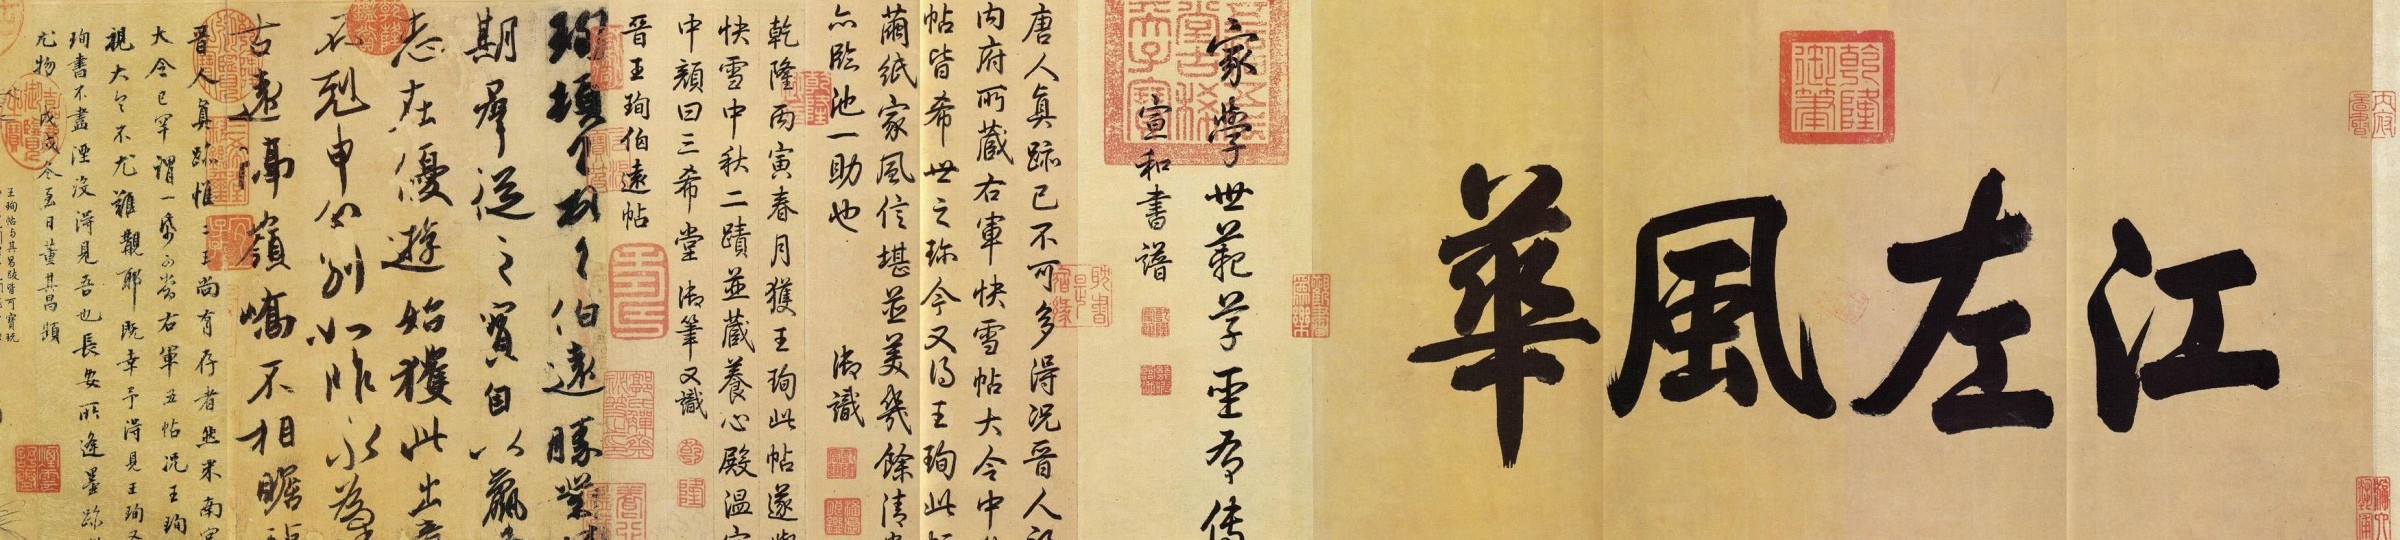 江左風華
乾隆
御筆
家學世範草聖有傳
宣和書譜
唐人真跡已不可多得況晉人
內府所藏右軍快雪帖大令中
帖皆希世之珍今又得王珣此
繭紙家風信堪並美幾餘清
亦臨池一助也 御識
乾隆丙寅春月獲王珣此帖遂與
快雪中秋二蹟並藏養心殿溫室
中顏曰三希堂 御筆又識
晉王珣伯遠帖
珣頓首頓首伯遠勝業情
期群從之寶自以羸
志在優游始獲此出意
不剋申分別如昨永為
古遠隔嶺嶠不相瞻
晉人真跡惟二王尚有存者然米南宮
大令已罕謂一紙可當右軍五帖況王珣
視大令不尤難覯耶既幸予得見王珣又
珣書不盡湮沒得見吾也長安所逢墨跡
尤物戊戌冬至日董其昌題